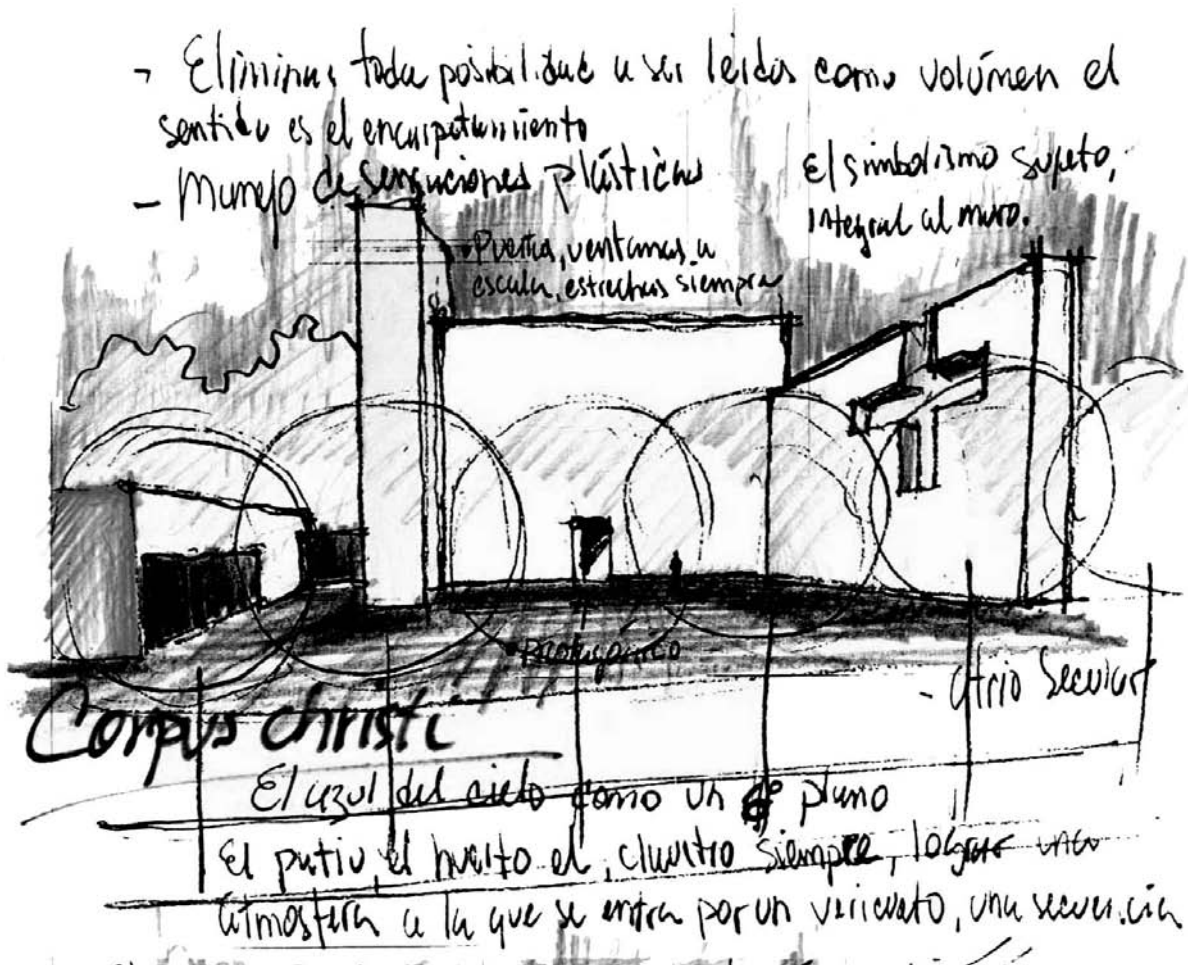 - Eliminar toda posibilidad a ser leidos como volúmen el
sentido es el encarpetamiento
- Manejo de sensaciones plásticas
El simbolismo sujeto,
integral al muro.
• Puerta, ventanas a
escala, estrechas siempre
• protagónico
- Atrio Secular
Corpus Christi
El azul del cielo como un plano
El patio, el huerto el, claustro siempre, lograr una
atmosfera a la que se entra por un vericueto, una secuencia